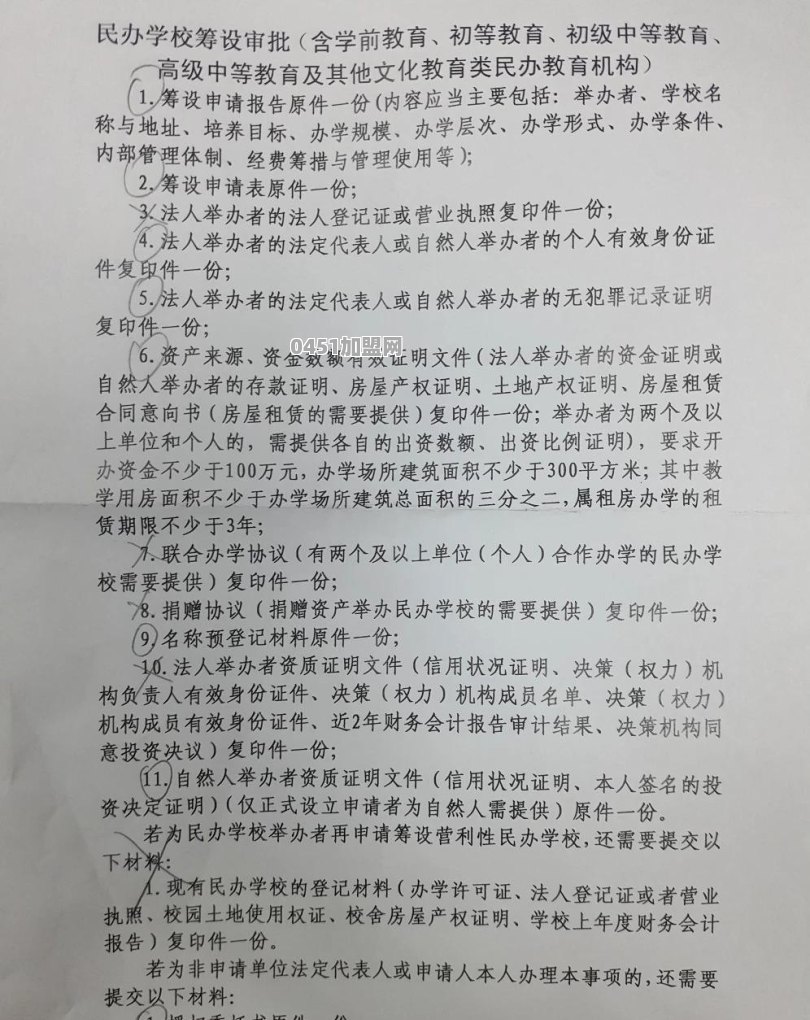 民办学校筹设审批(含学前教育、初等教育、初级中等教育、
高级中等教育及其他文化教育类民办教育机构)
1.筹设申请报告原件一份(内容应当主要包括:举办者、学校名
称与地址、培养目标、办学规模、办学层次、办学形式、办学条件、
内部管理体制、经费筹措与管理使用等);
2.筹设申请表原件一份;
3.法人举办者的法人登记证或营业执照复印件一份;
4.法人举办者的法定代表人或自然人举办者的个人有效身份证
件复印件一份;
5.法人举办者的法定代表人或自然人举办者的无犯罪记录证明
复印件一份;
0451加盟网
6.资产来源、资金数额有效证明文件(法人举办者的资金证明或
自然人举办者的存款证明、房屋产权证明、土地产权证明、房屋租赁
合同意向书(房屋租赁的需要提供)复印件一份;举办者为两个及以
上单位和个人的,需提供各自的出资数额、出资比例证明),要求开
办资金不少于100万元,办学场所建筑面积不少于300平方米;其中教
学用房面积不少于办学场所建筑总面积的三分之二,属租房办学的租
赁期限不少于3年;
7.联合办学协议(有两个及以上单位(个人)合作办学的民办学
校需要提供)复印件一份;
8.捐赠协议(捐赠资产举办民办学校的需要提供)复印件一份;
9.名称预登记材料原件一份;
10.法人举办者资质证明文件(信用状况证明、决策(权力)机
构负责人有效身份证件、决策(权力)机构成员名单、决策(权力)
机构成员有效身份证件、近2年财务会计报告审计结果、决策机构同
意投资决议)复印件一份;
11.自然人举办者资质证明文件(信用状况证明、本人签名的投
资决定证明)(仅正式设立申请者为自然人需提供)原件一份。
若为民办学校举办者再申请筹设营利性民办学校,还需要提交以
下材料:
1.现有民办学校的登记材料(办学许可证、法人登记证或者营业
执照、校园土地使用权证、校舍房屋产权证明、学校上年度财务会计
报告)复印件一份。
若为非申请单位法定代表人或申请人本人办理本事项的,还需要
提交以下材料: